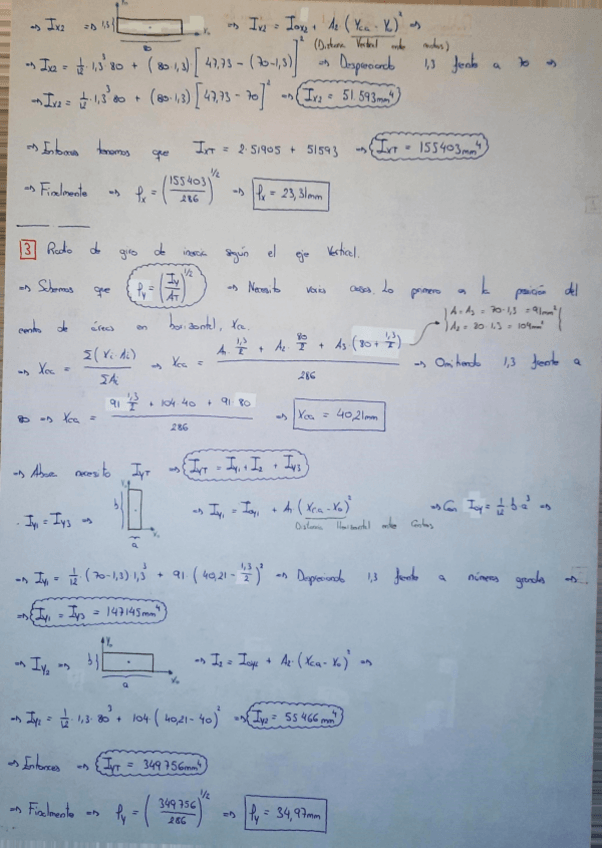 ⇒ Ix2 ⇒ 1,3 80 x₀ ⇒ Ix2 = I0x2 + A2 (Ycα - Y0)² ⇒
(Distancia Vertical entre centros)
⇒ Ix2 = 1/12 · 1,3³ · 80 + (80·1,3) [47,73 - (70-1,3)]² ⇒ Despreciando 1,3 frente a 70 ⇒
⇒ Ix2 = 1/12 · 1,3³ · 80 + (80·1,3) [47,73 - 70]² ⇒ Ix2 = 51.593mm⁴
⇒ Entonces tenemos que IxT = 2·51905 + 51593 ⇒ IxT = 155403mm⁴
⇒ Finalmente ⇒ ρx = (155403/286)^1/2 ⇒ ρx = 23,31mm
3 Radio de giro de inercia según el eje Vertical.
⇒ Sabemos que ρy = (Iy/AT)^1/2 ⇒ Necesito varias cosas. Lo primero es la posición del
centro de áreas en horizontal, Xcα.
A1 = A3 = 70·1,3 = 91mm²
A2 = 80·1,3 = 104mm²
⇒ Xcα = Σ(Xi·Ai)/ΣAi ⇒ Xcα = (A1·1,3/2 + A2·80/2 + A3(80+1,3/2))/286 ⇒ Omitiendo 1,3 frente a
80 ⇒ Xcα = (91·1,3/2 + 104·40 + 91·80)/286 ⇒ Xcα = 40,21mm
⇒ Ahora necesito IyT ⇒ IyT = Iy1 + I2 + Iy3
· Iy1 = Iy3 ⇒ b a x₀ ⇒ Iy1 = I0y1 + A1 (Xcα - X0)² ⇒ Con I0y = 1/12 · b · a³ ⇒
Distancia Horizontal entre Centros
⇒ Iy1 = 1/12 (70-1,3) 1,3³ + 91 (40,21 - 1,3/2)² ⇒ Despreciando 1,3 frente a números grandes ⇒
⇒ Iy1 = Iy3 = 147145mm⁴
⇒ Iy2 ⇒ b a Y₀ X₀ ⇒ I2 = I0y2 + A2 · (Xcα - X0)² ⇒
⇒ Iy2 = 1/12 · 1,3 · 80³ + 104 (40,21 - 40)² ⇒ Iy2 = 55466mm⁴
⇒ Entonces ⇒ IyT = 349756mm⁴
⇒ Finalmente ⇒ ρy = (349756/286)^1/2 ⇒ ρy = 34,97mm